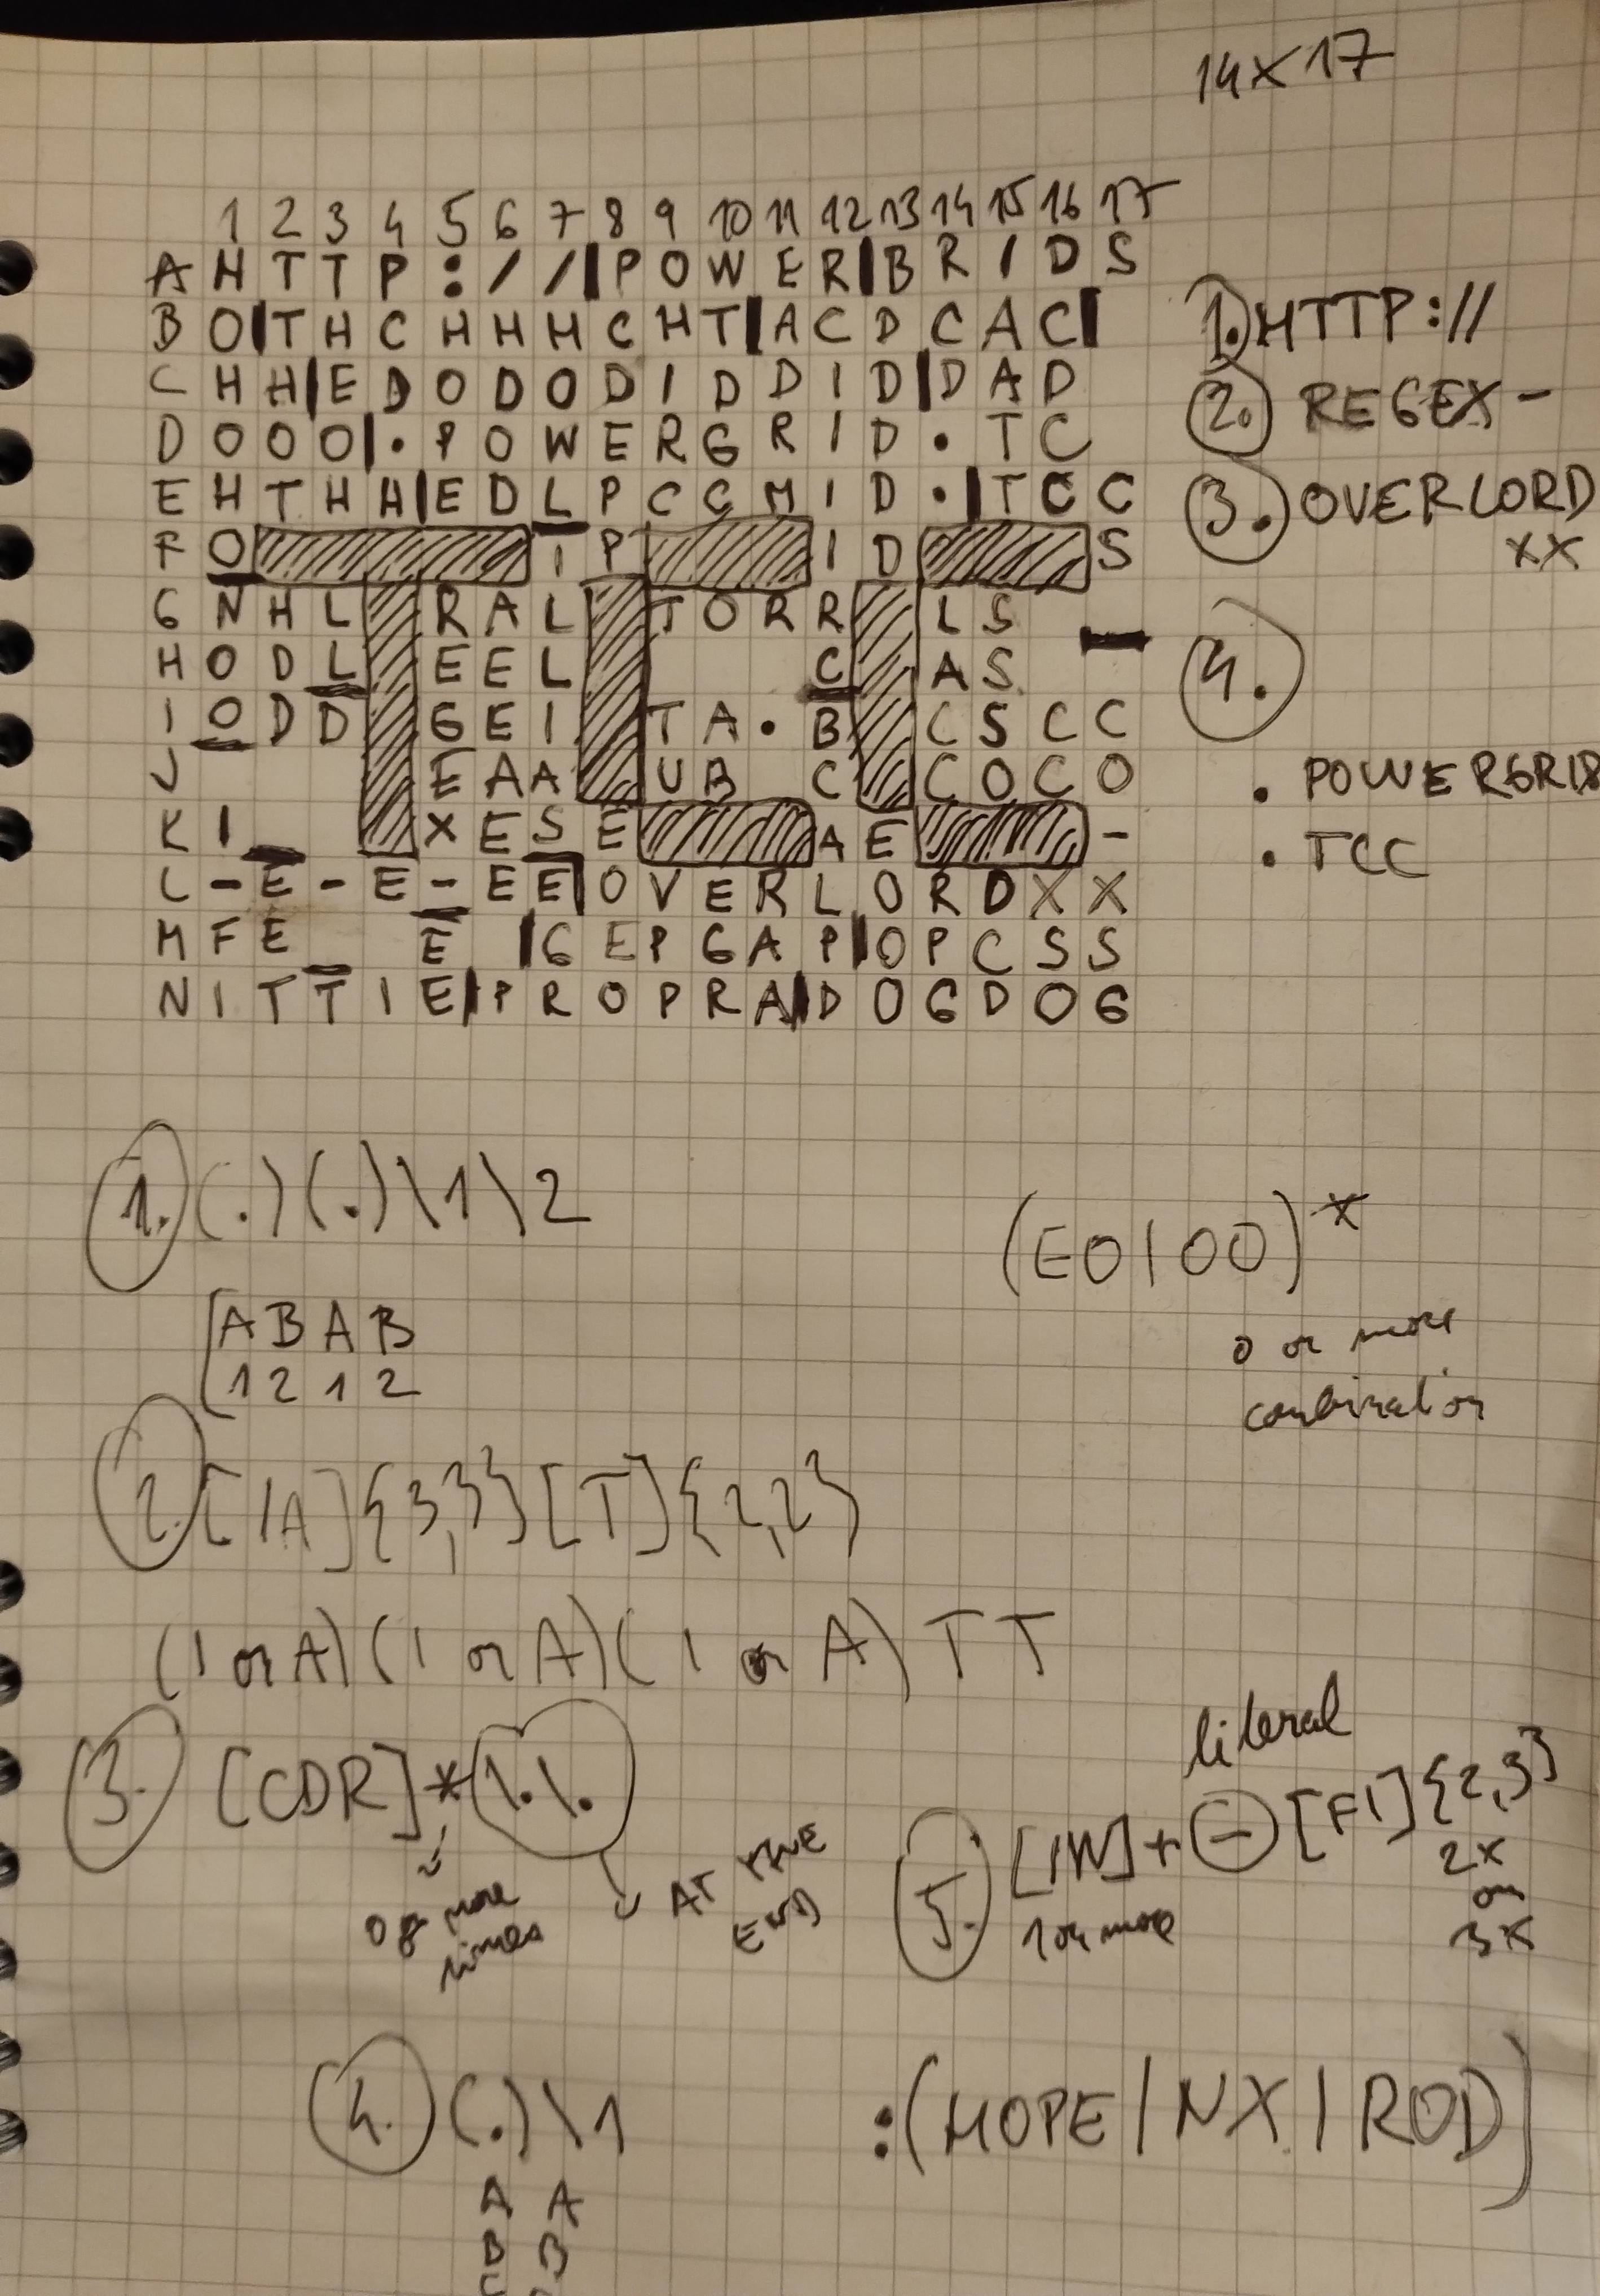 14X17
1 2 3 4 5 6 7 8 9 10 11 12 13 14 15 16 17
A H T T P : / / P O W E R B R I D S
B O T H C H H H C H T A C D C A C
C H H E D O D O D I D D I D D A D
D O O O . P O W E R G R I D . T C
E H T H H E D L P C C M I D . T C C
F O I P I D S
G N H L R A L T O R R L S
H O D L E E L C A S
I O D D G E I T A . B C S C C
J E A A U B C C O C O
K I X E S E A E -
L - E - E - E E O V E R L O R D X X
M F E E G E P G A P O P C S S
N I T T I E P R O P R A D O G D O G
1. HTTP://
2. REGEX -
3. OVERLORD
XX
4.
. POWERGRID
. TCC
1. (.)(.)\1\2
[A B A B
1 2 1 2
(EO|OO)*
0 or more
combination
2. [IA]{3,3}[T]{2,2}
(I or A)(I or A)(I or A) T T
3. [CDR]*\.\.
0 or more
times
AT THE
END
literal
5. [IW]+-[FI]{2,3}
1 or more
2x
or
3x
4. (.)\1
A A
B B
:(HOPE|NX|ROD)